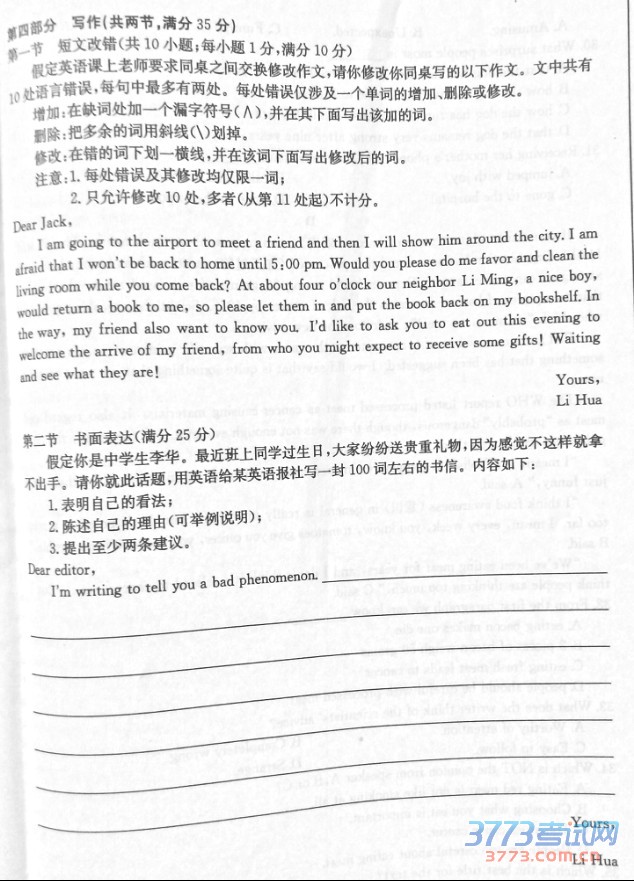 第四部分 写作(共两节,满分 35 分)
第一节 短文改错(共 10 小题;每小题 1 分,满分 10 分)
假定英语课上老师要求同桌之间交换修改作文,请你修改你同桌写的以下作文。文中共有
10 处语言错误,每句中最多有两处。每处错误仅涉及一个单词的增加、删除或修改。
增加:在缺词处加一个漏字符号(∧),并在其下面写出该加的词。
删除:把多余的词用斜线(\)划掉。
修改:在错的词下划一横线,并在该词下面写出修改后的词。
注意:1. 每处错误及其修改均仅限一词;
2. 只允许修改 10 处,多者(从第 11 处起)不计分。
Dear Jack,
I am going to the airport to meet a friend and then I will show him around the city. I am
afraid that I won't be back to home until 5:00 pm. Would you please do me favor and clean the
living room while you come back? At about four o'clock our neighbor Li Ming, a nice boy,
would return a book to me, so please let them in and put the book back on my bookshelf. In
the way, my friend also want to know you. I'd like to ask you to eat out this evening to
welcome the arrive of my friend, from who you might expect to receive some gifts! Waiting
and see what they are!
Yours,
Li Hua
第二节 书面表达(满分 25 分)
假定你是中学生李华。最近班上同学过生日,大家纷纷送贵重礼物,因为感觉不这样就拿
不出手。请你就此话题,用英语给某英语报社写一封 100 词左右的书信。内容如下:
1. 表明自己的看法;
2. 陈述自己的理由(可举例说明);
3. 提出至少两条建议。
Dear editor,
I'm writing to tell you a bad phenomenon.
Yours,
Li Hua
3773考试网
3773.com.cn